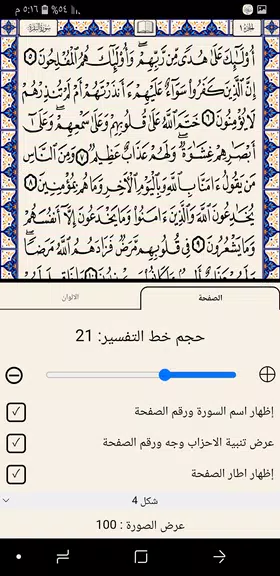 ٥:١٦ م ٥٤٪
الجزء ١
سورة البقرة
أُوْلَٰٓئِكَ عَلَىٰ هُدًى مِّن رَّبِّهِمْ وَأُوْلَٰٓئِكَ هُمُ ٱلْمُفْلِحُونَ ٥
إِنَّ ٱلَّذِينَ كَفَرُوا۟ سَوَآءٌ عَلَيْهِمْ ءَأَنذَرْتَهُمْ أَمْ لَمْ تُنذِرْهُمْ
لَا يُؤْمِنُونَ ٦ خَتَمَ ٱللَّهُ عَلَىٰ قُلُوبِهِمْ وَعَلَىٰ سَمْعِهِمْ وَعَلَىٰٓ
أَبْصَٰرِهِمْ غِشَٰوَةٌ وَلَهُمْ عَذَابٌ عَظِيمٌ ٧ وَمِنَ ٱلنَّاسِ
مَن يَقُولُ ءَامَنَّا بِٱللَّهِ وَبِٱلْيَوْمِ ٱلْءَاخِرِ وَمَا هُم بِمُؤْمِنِينَ ٨
يُخَٰدِعُونَ ٱللَّهَ وَٱلَّذِينَ ءَامَنُوا۟ وَمَا يَخْدَعُونَ إِلَّآ أَنفُسَهُمْ
وَمَا يَشْعُرُونَ ٩ فِى قُلُوبِهِم مَّرَضٌ فَزَادَهُمُ ٱللَّهُ مَرَضًا
الصفحة
الالوان
حجم خط التفسير: 21
إظهار اسم السورة ورقم الصفحة
عرض تنبية الاحزاب وجه ورقم الصفحة
إظهار اطار الصفحة
شكل 4
عرض الصورة : 100